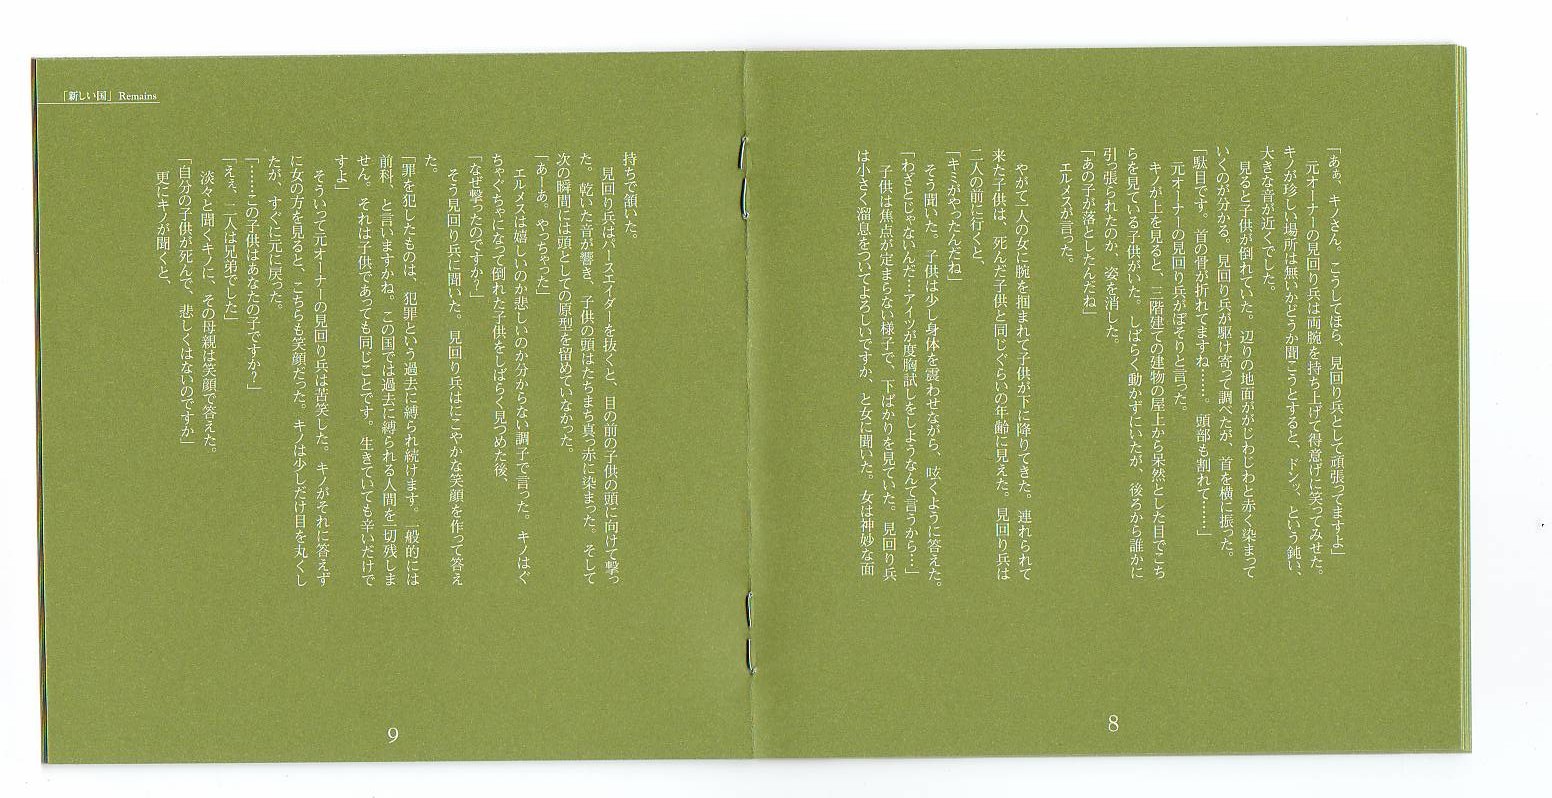 「あぁ、キノさん。こうしてほら、見回り兵として頑張ってますよ」
　元オーナーの見回り兵は両腕を持ち上げて得意げに笑ってみせた。
　キノが珍しい場所は無いかどうか聞こうとすると、ドンッ、という鈍い、
大きな音が近くでした。
　見ると子供が倒れていた。辺りの地面がじわじわと赤く染まって
いくのが分かる。見回り兵が駆け寄って調べたが、首を横に振った。
「駄目です。首の骨が折れてますね……。頭部も割れて……」
　元オーナーの見回り兵がぼそりと言った。
　キノが上を見ると、三階建ての建物の屋上から呆然とした目でこち
らを見ている子供がいた。しばらく動かずにいたが、後ろから誰かに
引っ張られたのか、姿を消した。
「あの子が落としたんだね」
　エルメスが言った。
　やがて二人の女に腕を掴まれて子供が下に降りてきた。連れられて
来た子供は、死んだ子供と同じぐらいの年齢に見えた。見回り兵は
二人の前に行くと、
「キミがやったんだね」
　そう聞いた。子供は少し身体を震わせながら、呟くように答えた。
「わざとじゃないんだ…アイツが度胸試しをしようなんて言うから…」
　子供は焦点が定まらない様子で、下ばかりを見ていた。見回り兵
は小さく溜息をついてよろしいですか、と女に聞いた。女は神妙な面
8
「新しい国」 Remains
持ちで頷いた。
　見回り兵はパースエイダーを抜くと、目の前の子供の頭に向けて撃っ
た。乾いた音が響き、子供の頭はたちまち真っ赤に染まった。そして
次の瞬間には頭としての原型を留めていなかった。
「あーあ。やっちゃった」
　エルメスは嬉しいのか悲しいのか分からない調子で言った。キノはぐ
ちゃぐちゃになって倒れた子供をしばらく見つめた後、
「なぜ撃ったのですか？」
　そう見回り兵に聞いた。見回り兵はにこやかな笑顔を作って答え
た。
「罪を犯したものは、犯罪という過去に縛られ続けます。一般的には
前科、と言いますかね。この国では過去に縛られる人間を一切残しま
せん。それは子供であっても同じことです。生きていても辛いだけで
すよ」
　そういって元オーナーの見回り兵は苦笑した。キノがそれに答えず
に女の方を見ると、こちらも笑顔だった。キノは少しだけ目を丸くし
たが、すぐに元に戻った。
「……この子供はあなたの子ですか？」
「えぇ、二人は兄弟でした」
　淡々と聞くキノに、その母親は笑顔で答えた。
「自分の子供が死んで、悲しくはないのですか」
　更にキノが聞くと、
9